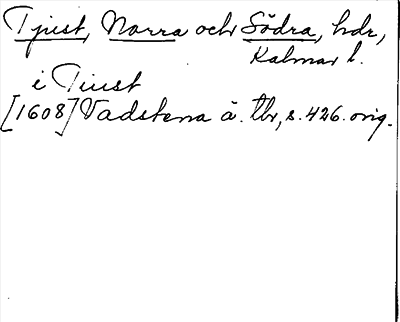 Tjust, Norra och Södra, hdr,
Kalmar l.
i Tiust
[1608] Vadstena ä. tbr, s. 426. orig.